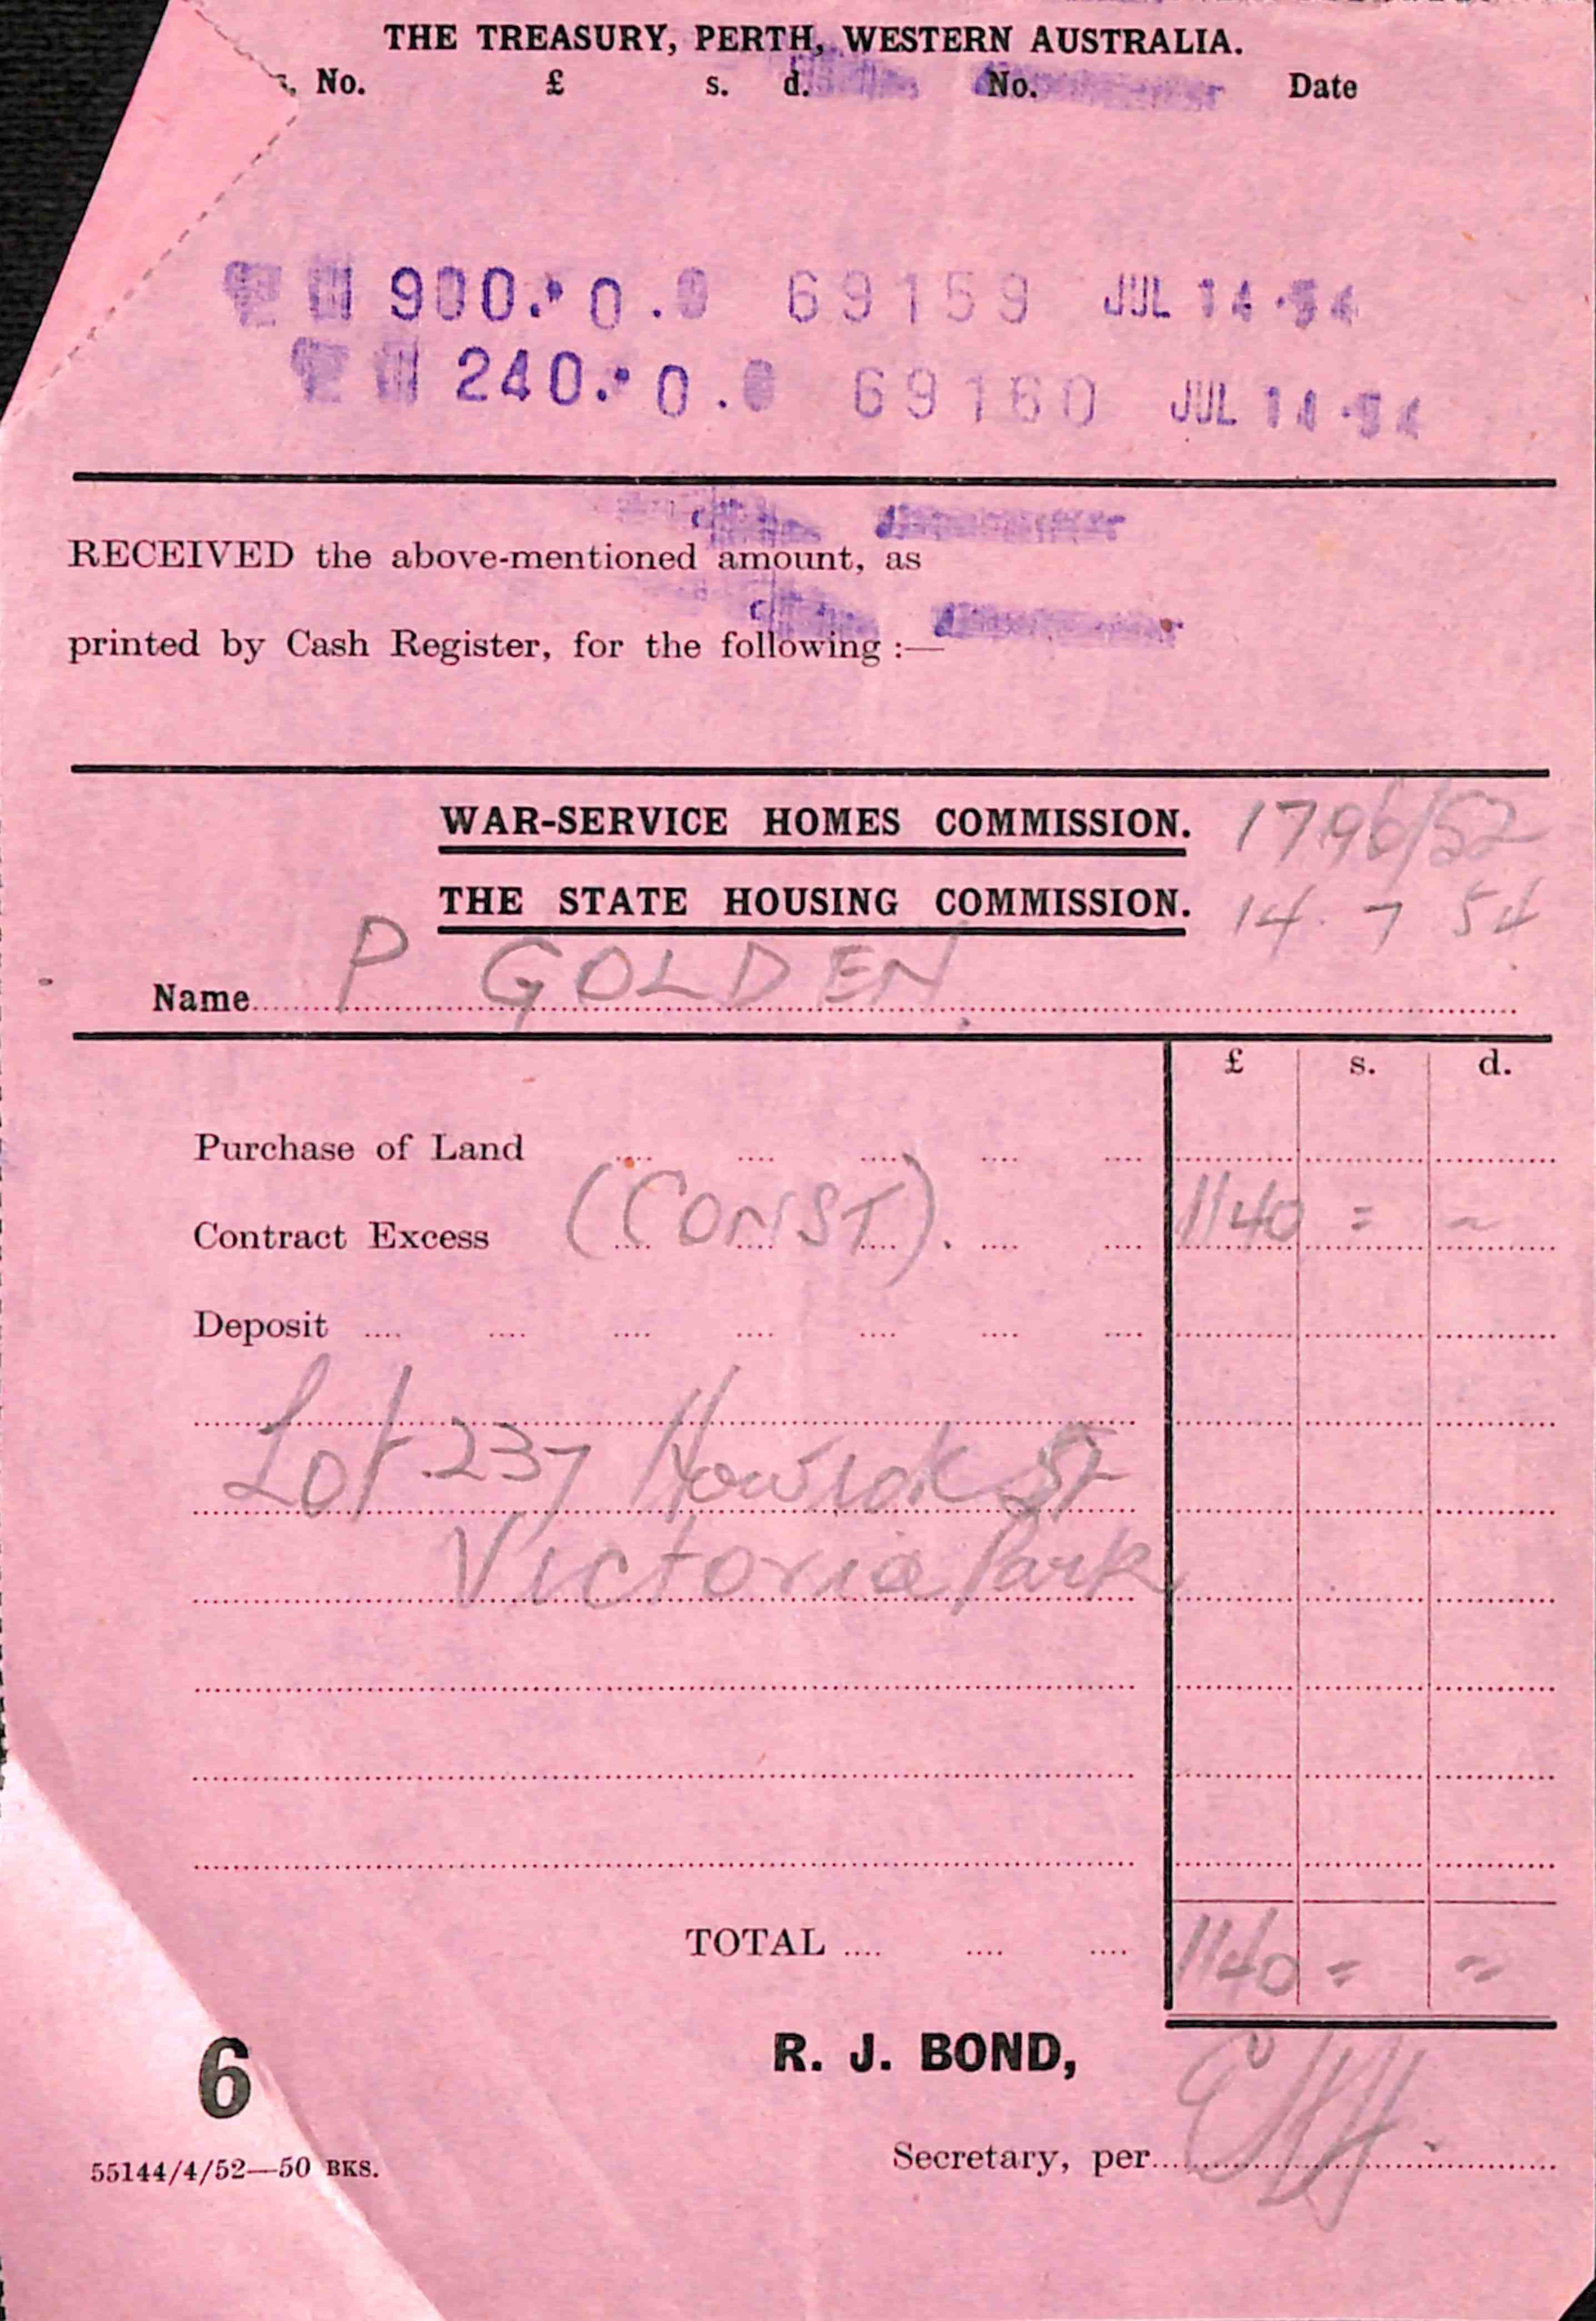 THE TREASURY, PERTH, WESTERN AUSTRALIA.
s. No. £ s. d. No. Date
900. 0.0 69159 JUL 14 54
240. 0.0 69160 JUL 14 54
RECEIVED the above-mentioned amount, as
printed by Cash Register, for the following :—
WAR-SERVICE HOMES COMMISSION. 1796/52
THE STATE HOUSING COMMISSION. 14. 7 54
Name P GOLDEN
£ s. d.
Purchase of Land
Contract Excess (CONST). 1140 = =
Deposit
Lot 237 Howick St
Victoria Park
TOTAL 1140 = =
6
R. J. BOND,
Secretary, per
55144/4/52—50 BKS.